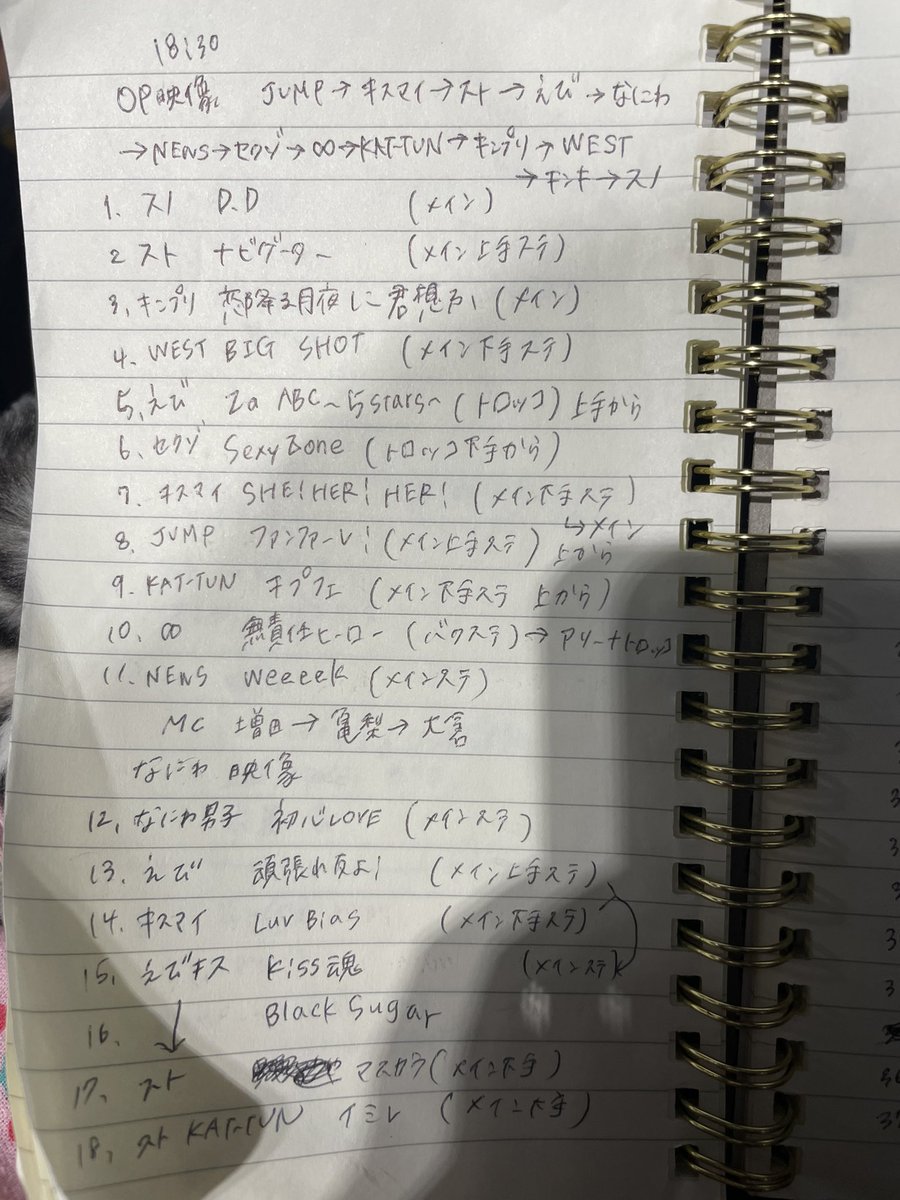 18:30
OP映像 JUMP→キスマイ→スト→えび→なにわ
→NEWS→セクゾ→∞→KAT-TUN→キンプリ→WEST
→キンキ→スノ
1. スノ D.D (メイン)
2 スト ナビゲーター (メイン上手ステ)
3. キンプリ 恋降る月夜に君想ふ (メイン)
4. WEST BIG SHOT (メイン下手ステ)
5. えび Za ABC~5stars~ (トロッコ) 上手から
6. セクゾ Sexy Zone (トロッコ下手から)
7. キスマイ SHE! HER! HER! (メイン下手ステ)
↳メイン
8. JUMP ファンファーレ! (メイン上手ステ) 上から
9. KAT-TUN キプフェ (メイン下手ステ 上から)
10. ∞ 無責任ヒーロー (バクステ)→アリーナトロッコ
11. NEWS weeeek (メインステ)
MC 増田→亀梨→大倉
なにわ 映像
12. なにわ男子 初心LOVE (メインステ)
13. えび 頑張れ友よ! (メイン上手ステ)
14. キスマイ Luv Bias (メイン下手ステ)
15. えびキス Kiss魂 (メインステ)
16. ↓ Black Sugar
17. スト マスカラ (メイン下手)
18. スト KAT-TUN イミレ (メイン下手)